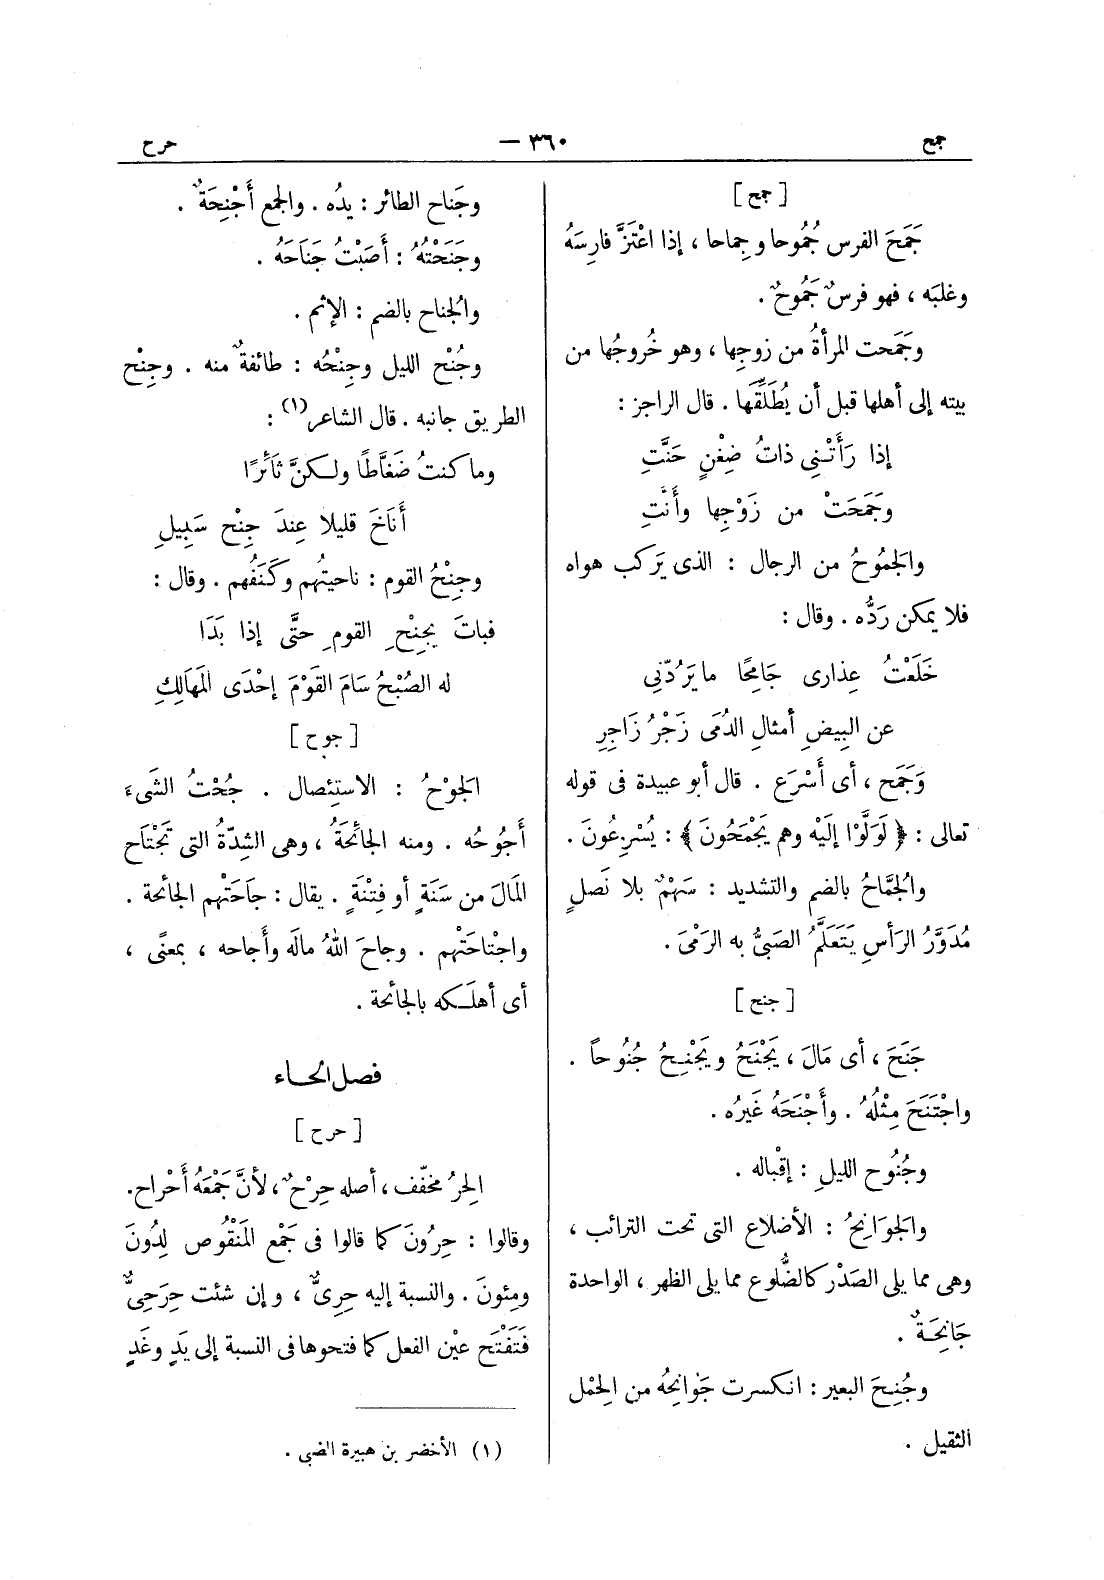 جمح
٣٦٠ —
حرح
[ جمح ]
جَمَحَ الفرس جُمُوحا وجِماحا ، إذا اعْتَزَّ فارِسَهُ
وغلبَه ، فهو فرسٌ جَمُوحٌ .
وجَمَحت المرأةُ من زوجِها ، وهو خُروجُها من
بيته إلى أهلها قبل أن يُطَلِّقَها . قال الراجز :
إذا رَأَتْنِى ذاتُ ضِغْنٍ حَنَّتِ
وَجَمَحَتْ من زَوْجِها وأَنَّتِ
والجَمُوحُ من الرجال : الذى يَركب هواه
فلا يمكن رَدُّه . وقال :
خَلَعْتُ عِذارى جَامِحًا ما يَرُدّنِى
عن البِيضِ أمثالِ الدُمَى زَجْرُ زَاجِرِ
وَجَمَح ، أى أَسْرَع . قال أبو عبيدة فى قوله
تعالى : ﴿ لَوَلَّوْا إلَيْه وهم يَجْمَحُونَ ﴾ : يُسْرِعُونَ .
والجُمَّاحُ بالضم والتشديد : سَهْمٌ بلا نَصلٍ
مُدَوَّرُ الرَأسِ يَتَعَلَّمُ الصَبىُّ به الرَمْىَ .
[ جنح ]
جَنَحَ ، أى مَالَ ، يَجْنَحُ ويَجْنِحُ جُنُوحاً .
واجْتَنَحَ مِثْلُهُ . وأَجْنَحَهُ غَيرُه .
وجُنُوح الليلِ : إقْباله .
والجوَانِحُ : الأضلاع التى تحت الترائب ،
وهى مما يلى الصَدْر كالضُّلوع مما يلى الظهر ، الواحدة
جَانِحَةٌ .
وجُنِحَ البعير : انكسرت جَوَانِحُه من الحِمْل
الثقيل .
وجَناح الطائر : يدُه . والجمع أَجْنِحَةٌ .
وجَنَحْتُهُ : أَصَبْتُ جَنَاحَهُ .
والجُناح بالضم : الإثم .
وجُنْح الليل وجِنْحُه : طائفةٌ منه . وجِنْح
الطريق جانبه . قال الشاعر (١) :
وما كنتُ ضَغَّاطًا ولكنَّ ثَائرًا
أَنَاخَ قليلا عِندَ جِنْح سَبِيلِ
وجِنْحُ القوم : ناحيتُهم وكَنَفُهم . وقال :
فباتَ بِجِنْحِ القومِ حتَّى إذا بَدَا
له الصُبْحُ سَامَ القَوْمَ إحْدَى المَهَالِكِ
[ جوح ]
الجَوْحُ : الاستِئصال . جُحْتُ الشَىءَ
أَجُوحُه . ومنه الجائِحَةُ ، وهى الشِدّةُ التى تَجْتَاح
المَالَ من سَنَةٍ أو فِتْنَةٍ . يقال : جَاحَتْهم الجائحة .
واجْتاحَتْهم . وجاحَ اللهُ مالَه وأَجاحه ، بمعنًى ،
أى أهلَكه بالجائحة .
فصل الحاء
[ حرح ]
الحِرُ مخفّف ، أصله حِرْحٌ ، لأنَّ جَمْعَهُ أَحْراح .
وقالوا : حِرُونَ كما قالوا فى جَمْع المَنْقُوص لِدُونَ
ومِئونَ . والنسبة إليه حِرِىٌّ ، وإن شئت حِرَحِىٌّ
فَتَفْتَح عيْن الفعل كما فتحوها فى النسبة إلى يَدٍ وغَدٍ
(١) الأخضر بن هبيرة الضبى .